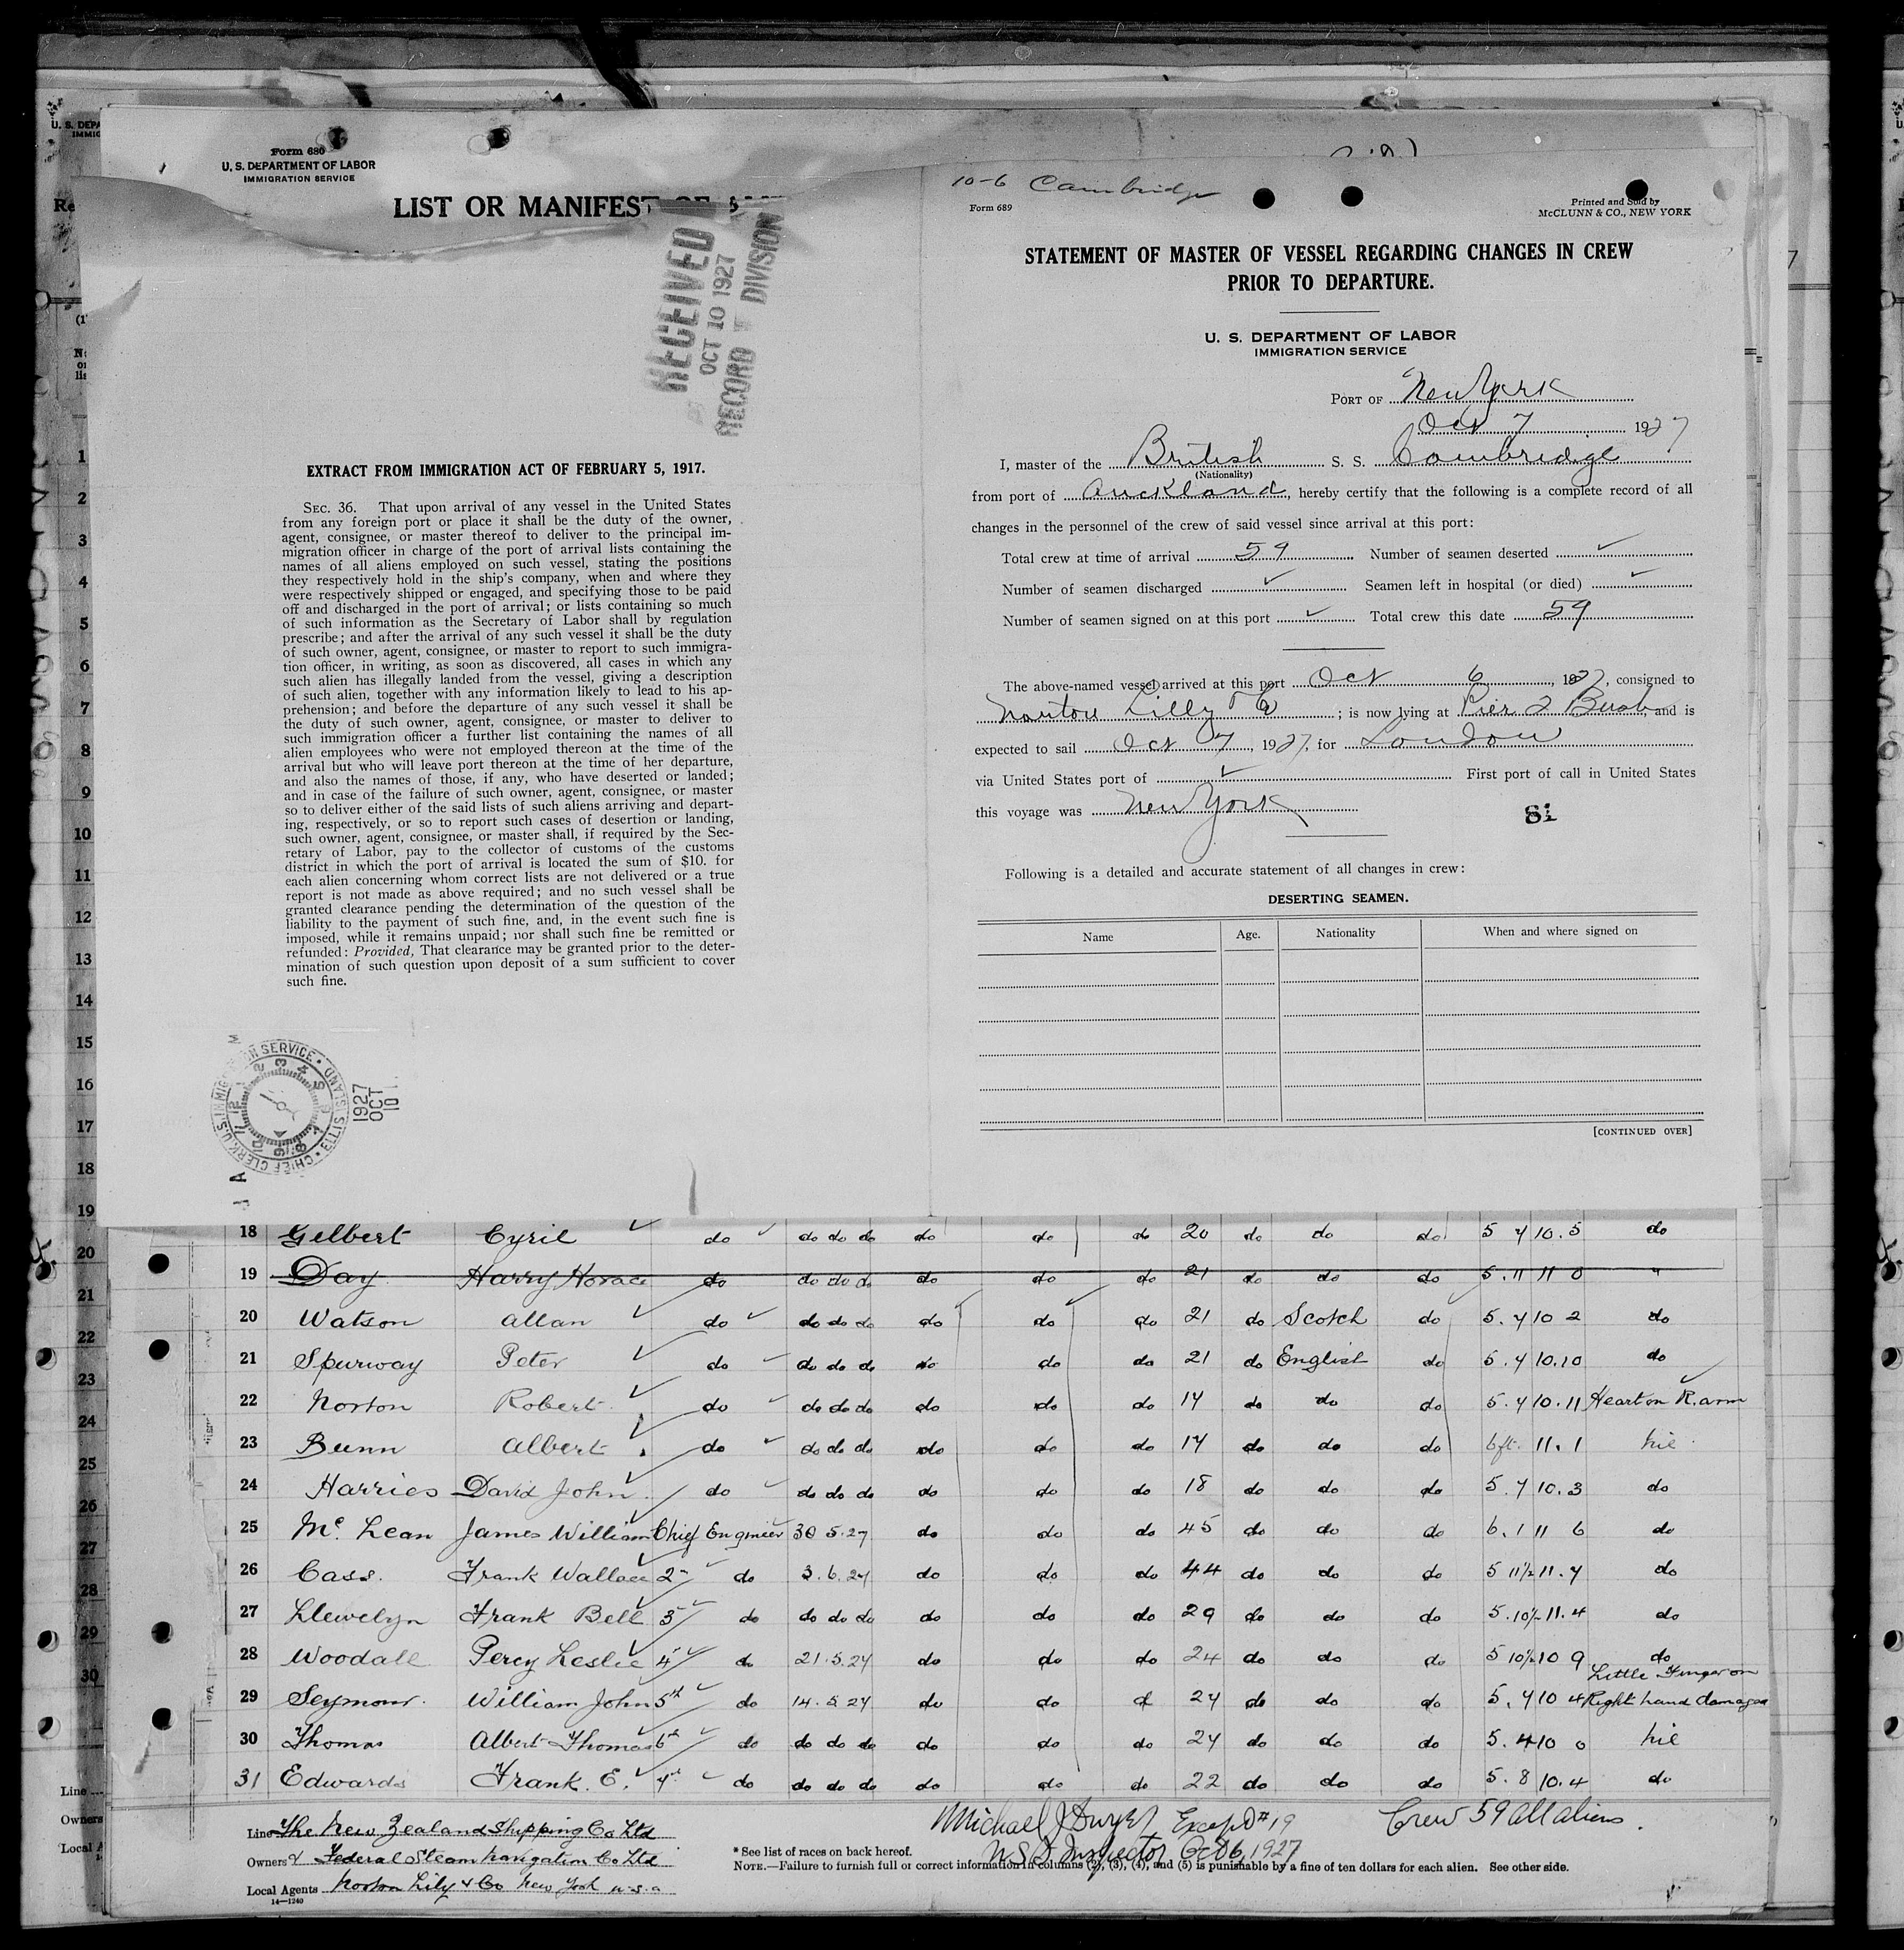 Form 680
U. S. DEPARTMENT OF LABOR
IMMIGRATION SERVICE
LIST OR MANIFEST OF
RECEIVED
OCT 10 1927
RECORD DIVISION
EXTRACT FROM IMMIGRATION ACT OF FEBRUARY 5, 1917.
SEC. 36. That upon arrival of any vessel in the United States
from any foreign port or place it shall be the duty of the owner,
agent, consignee, or master thereof to deliver to the principal im-
migration officer in charge of the port of arrival lists containing the
names of all aliens employed on such vessel, stating the positions
they respectively hold in the ship's company, when and where they
were respectively shipped or engaged, and specifying those to be paid
off and discharged in the port of arrival; or lists containing so much
of such information as the Secretary of Labor shall by regulation
prescribe; and after the arrival of any such vessel it shall be the duty
of such owner, agent, consignee, or master to report to such immigra-
tion officer, in writing, as soon as discovered, all cases in which any
such alien has illegally landed from the vessel, giving a description
of such alien, together with any information likely to lead to his ap-
prehension; and before the departure of any such vessel it shall be
the duty of such owner, agent, consignee, or master to deliver to
such immigration officer a further list containing the names of all
alien employees who were not employed thereon at the time of the
arrival but who will leave port thereon at the time of her departure,
and also the names of those, if any, who have deserted or landed;
and in case of the failure of such owner, agent, consignee, or master
so to deliver either of the said lists of such aliens arriving and depart-
ing, respectively, or so to report such cases of desertion or landing,
such owner, agent, consignee, or master shall, if required by the Sec-
retary of Labor, pay to the collector of customs of the customs
district in which the port of arrival is located the sum of $10. for
each alien concerning whom correct lists are not delivered or a true
report is not made as above required; and no such vessel shall be
granted clearance pending the determination of the question of the
liability to the payment of such fine, and, in the event such fine is
imposed, while it remains unpaid; nor shall such fine be remitted or
refunded: Provided, That clearance may be granted prior to the deter-
mination of such question upon deposit of a sum sufficient to cover
such fine.
CHIEF CLERK U.S. IMMIG'N SERVICE • ELLIS ISLAND
1927
OCT
10
10-6 Cambridge
Form 689
Printed and Sold by
McCLUNN & CO., NEW YORK
STATEMENT OF MASTER OF VESSEL REGARDING CHANGES IN CREW
PRIOR TO DEPARTURE.
U. S. DEPARTMENT OF LABOR
IMMIGRATION SERVICE
PORT OF New York
Oct 7 1927
I, master of the British S. S. Cambridge
(Nationality)
from port of Auckland, hereby certify that the following is a complete record of all
changes in the personnel of the crew of said vessel since arrival at this port:
Total crew at time of arrival 59 Number of seamen deserted ✓
Number of seamen discharged ✓ Seamen left in hospital (or died) ✓
Number of seamen signed on at this port ✓ Total crew this date 59
The above-named vessel arrived at this port Oct 6, 1927, consigned to
Norton Lilly & Co; is now lying at Pier 2 Bush, and is
expected to sail Oct 7, 1927, for London
via United States port of ✓ First port of call in United States
this voyage was New York
Following is a detailed and accurate statement of all changes in crew:
DESERTING SEAMEN.
Name Age. Nationality When and where signed on
[CONTINUED OVER]
18 Gelbert Cyril do do do do do do do 20 do do do 5 7 10.5 do
19 Day Harry Horace do do do do do do do 21 do do do 5.11 11 0 "
20 Watson Allan do do do do do do do 21 do Scotch do 5.7 10 2 do
21 Spurway Peter do do do do do do do 21 do English do 5.7 10.10 do
22 Norton Robert do do do do do do do 17 do do do 5.7 10.11 Heart on R. arm
23 Bunn Albert do do do do do do do 17 do do do 6ft. 11.1 nil
24 Harries David John do do do do do do do 18 do do do 5.7 10.3 do
25 Mc Lean James William Chief Engineer 30 5.27 do do do 45 do do do 6.1 11 6 do
26 Cass. Frank Wallace 2nd do 3.6.27 do do do 44 do do do 5 11½ 11.7 do
27 Llewelyn Frank Bell 3rd do do do do do do do 29 do do do 5.10½ 11.4 do
28 Woodall Percy Leslie 4th do 21.5.27 do do do 24 do do do 5 10½ 10 9 do
29 Seymour. William John 5th do 14.5.27 do do d 27 do do do 5.7 10 4 Little Finger on Right hand damaged
30 Thomas Albert Thomas 6th do do do do do do do 27 do do do 5.4 10 0 nil
31 Edwards Frank. E. 7th do do do do do do do 22 do do do 5.8 10.4 do
Line The New Zealand Shipping Co Ltd
Owners & Federal Steam Navigation Co Ltd
Local Agents Norton Lily & Co New York U.S.a
14—1240
Michael J Dwyer Except #19
U.S. Inspector Oct 6, 1927
Crew 59 all aliens.
* See list of races on back hereof.
NOTE.—Failure to furnish full or correct information in columns (2), (3), (4), and (5) is punishable by a fine of ten dollars for each alien. See other side.